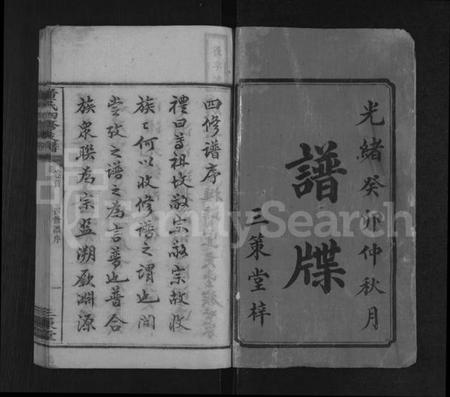 光緒癸卯仲秋月
譜牒
三策堂梓
四修譜序
禮曰尊祖故敬宗敬宗故收
族〻何以收修譜之謂也間
嘗攷之譜之為言普也普合
族衆聯為宗盟溯厥淵源
FamilySearch